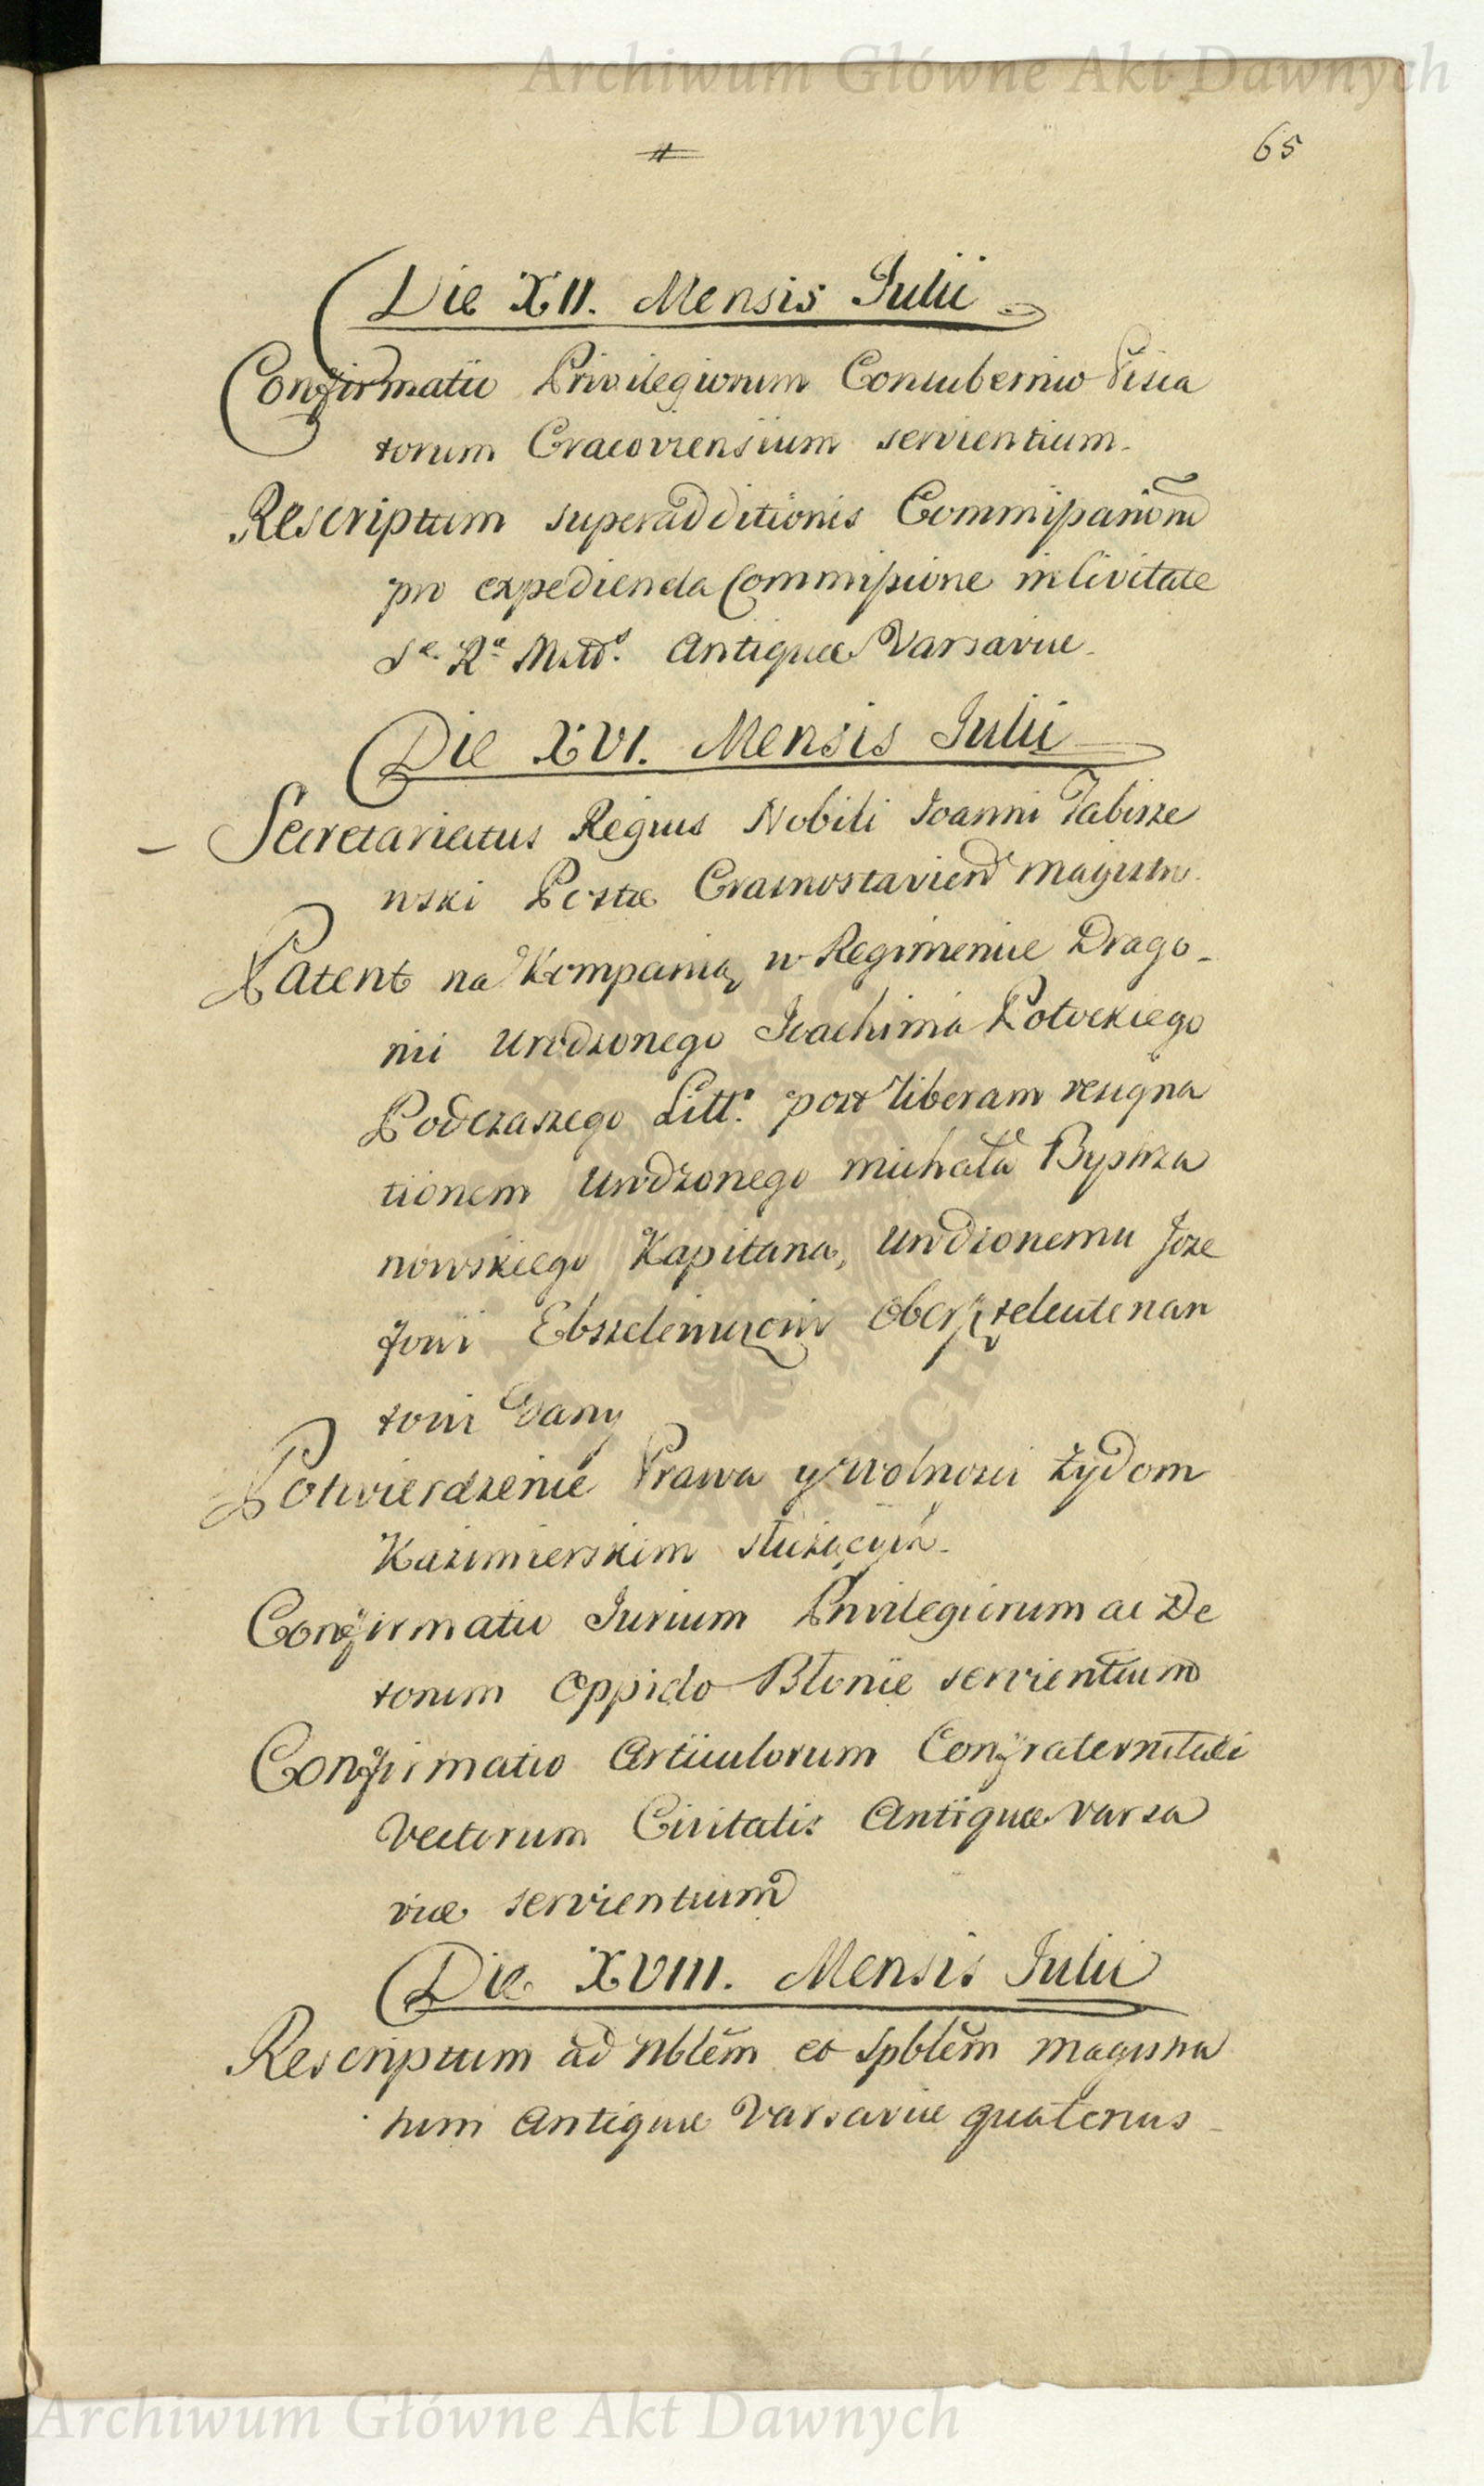 Archiwum Główne Akt Dawnych
65
Die XII. Mensis Iulii
Confirmatio Privilegiorum Contubernio Pisca
torum Cracoviensium servientium.
Rescriptum superadditionis Commissariorum
pro expedienda Commissione in Civitate
Sᵃ Rᵃ Mttis. Antiquae Varsaviae.
Die XVI. Mensis Iulii
Secretariatus Regius Nobili Ioanni Tabisze
wski Postae Crasnostavien magistro.
Patent na Kompanią w Regimenie Drago
nii Urodzonego Ioachima Potockiego
Podczaszego Litt. post liberam resigna
tionem Urodzonego Michała Byssza
nowskiego Kapitana, Urodzonemu Joze
fowi Oberszteleutenan
towi dany
Potwierdzenie Prawa y Wolnosci Żydom
Kazimierskim służących.
Confirmatio Iurium Privilegiorum ac De
torum Oppido Błonie servientium
Confirmatio Articulorum Confraternitati
Vectorum Civitatis Antiquae Varsa
viae servientium
Die XVIII. Mensis Iulii
Rescriptum ad Nblem et Spblem Magistra
tum Antiquae Varsaviae quatenus
Archiwum Główne Akt Dawnych